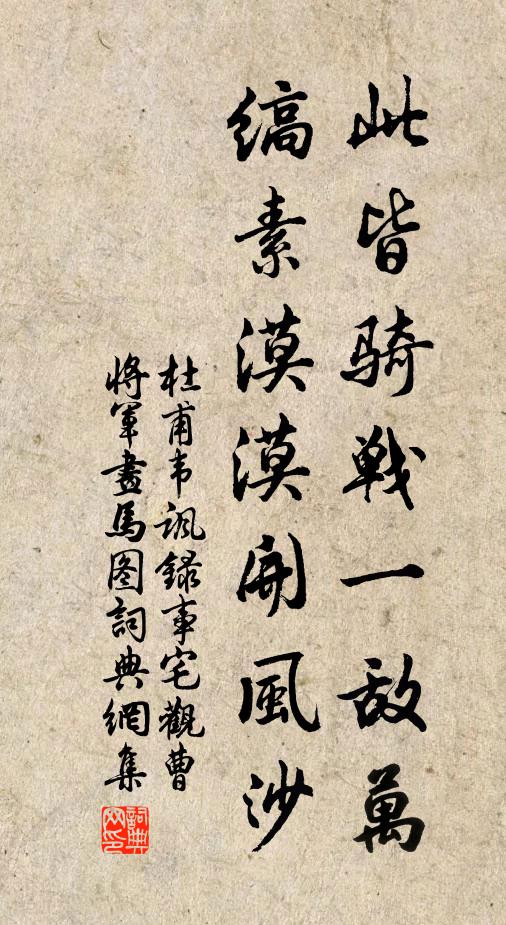 此皆骑戰一敌萬
缟素漠漠開風沙
杜甫韦讽録事宅觀曹
将軍畫馬图詞典網集
詞典网印